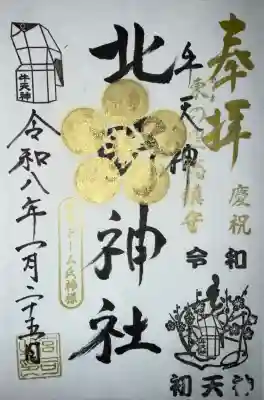 奉拝
慶祝
令和
初天神
牛天神
北野神社
東京ドーム氏神様
牛天神
令和八年一月二十五日